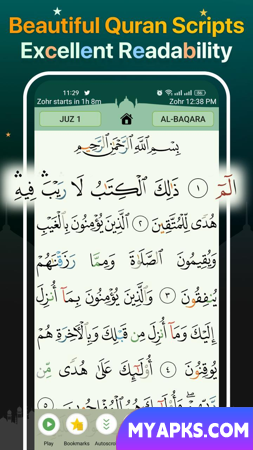 Beautiful Quran Scripts
Excellent Readability
11:29
Zohr starts in 1h 8m
Zohr 12:38 PM
JUZ 1
AL-BAQARA
بِسْمِ اللَّهِ الرَّحْمَٰنِ الرَّحِيمِ
الٓمٓ ١ ذَٰلِكَ الْكِتَٰبُ لَا رَيْبَ ۛ فِيهِ ۛ
هُدًى لِّلْمُتَّقِينَ ٢ الَّذِينَ يُؤْمِنُونَ بِالْغَيْبِ
وَيُقِيمُونَ الصَّلَوٰةَ وَمِمَّا رَزَقْنَٰهُمْ
يُنفِقُونَ ٣ وَالَّذِينَ يُؤْمِنُونَ بِمَا أُنزِلَ
إِلَيْكَ وَمَا أُنزِلَ مِن قَبْلِكَ وَبِالْءَاخِرَةِ هُمْ
يُوقِنُونَ ٤ أُولَٰئِكَ عَلَىٰ هُدًى مِّن
Play
Bookmarks
Autoscroll
MYAPKS.COM